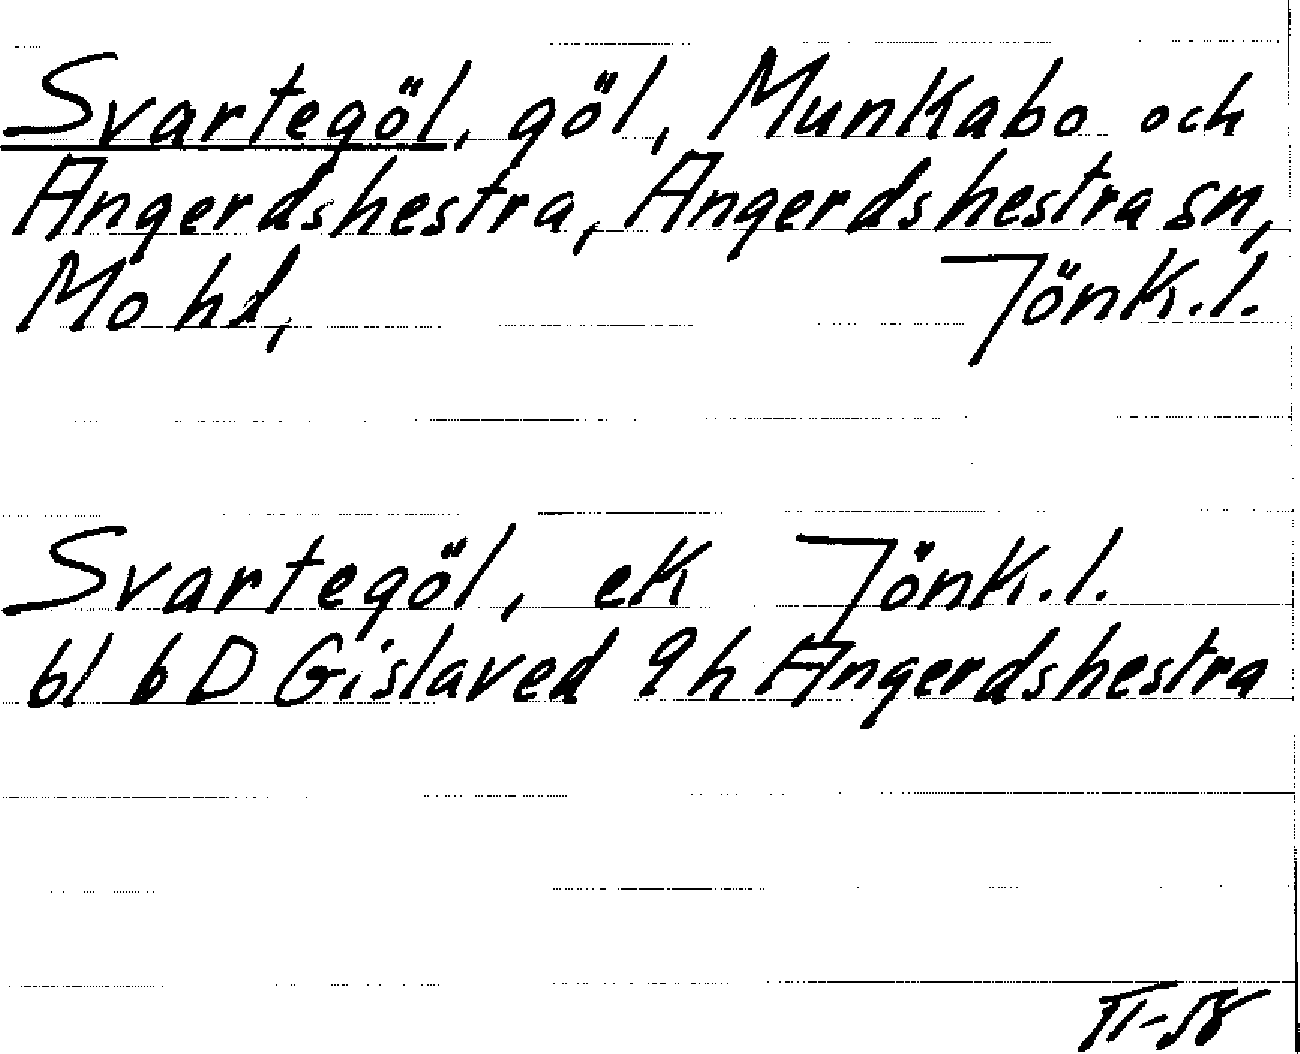 Svartegöl, göl, Munkabo och
Ångerdshestra, Ångerdshestra sn,
Mo hd, Jönk.l.
Svartegöl, ek Jönk.l.
bl 6 D Gislaved 9 h Ångerdshestra
VI-58